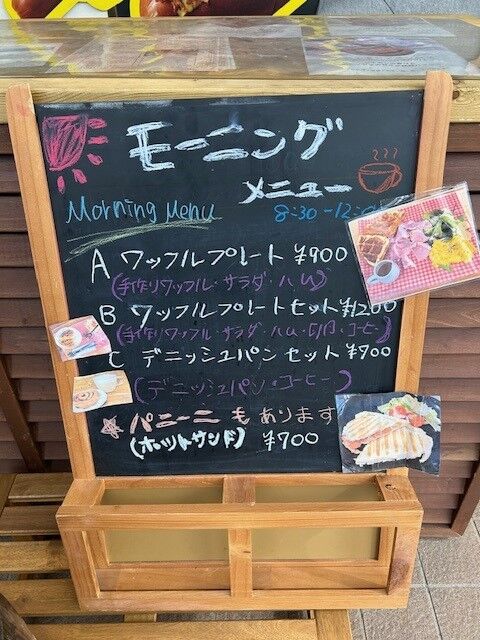 モーニング
メニュー
Morning Menu
8:30-12:0
A ワッフルプレート ¥900
(手作りワッフル・サラダ・ハム)
B ワッフルプレートセット ¥1200
(手作りワッフル サラダ・ハム・コーヒー)
C デニッシュパンセット ¥700
(デニッシュパン・コーヒー)
パニーニもあります
(ホットサンド) ¥700